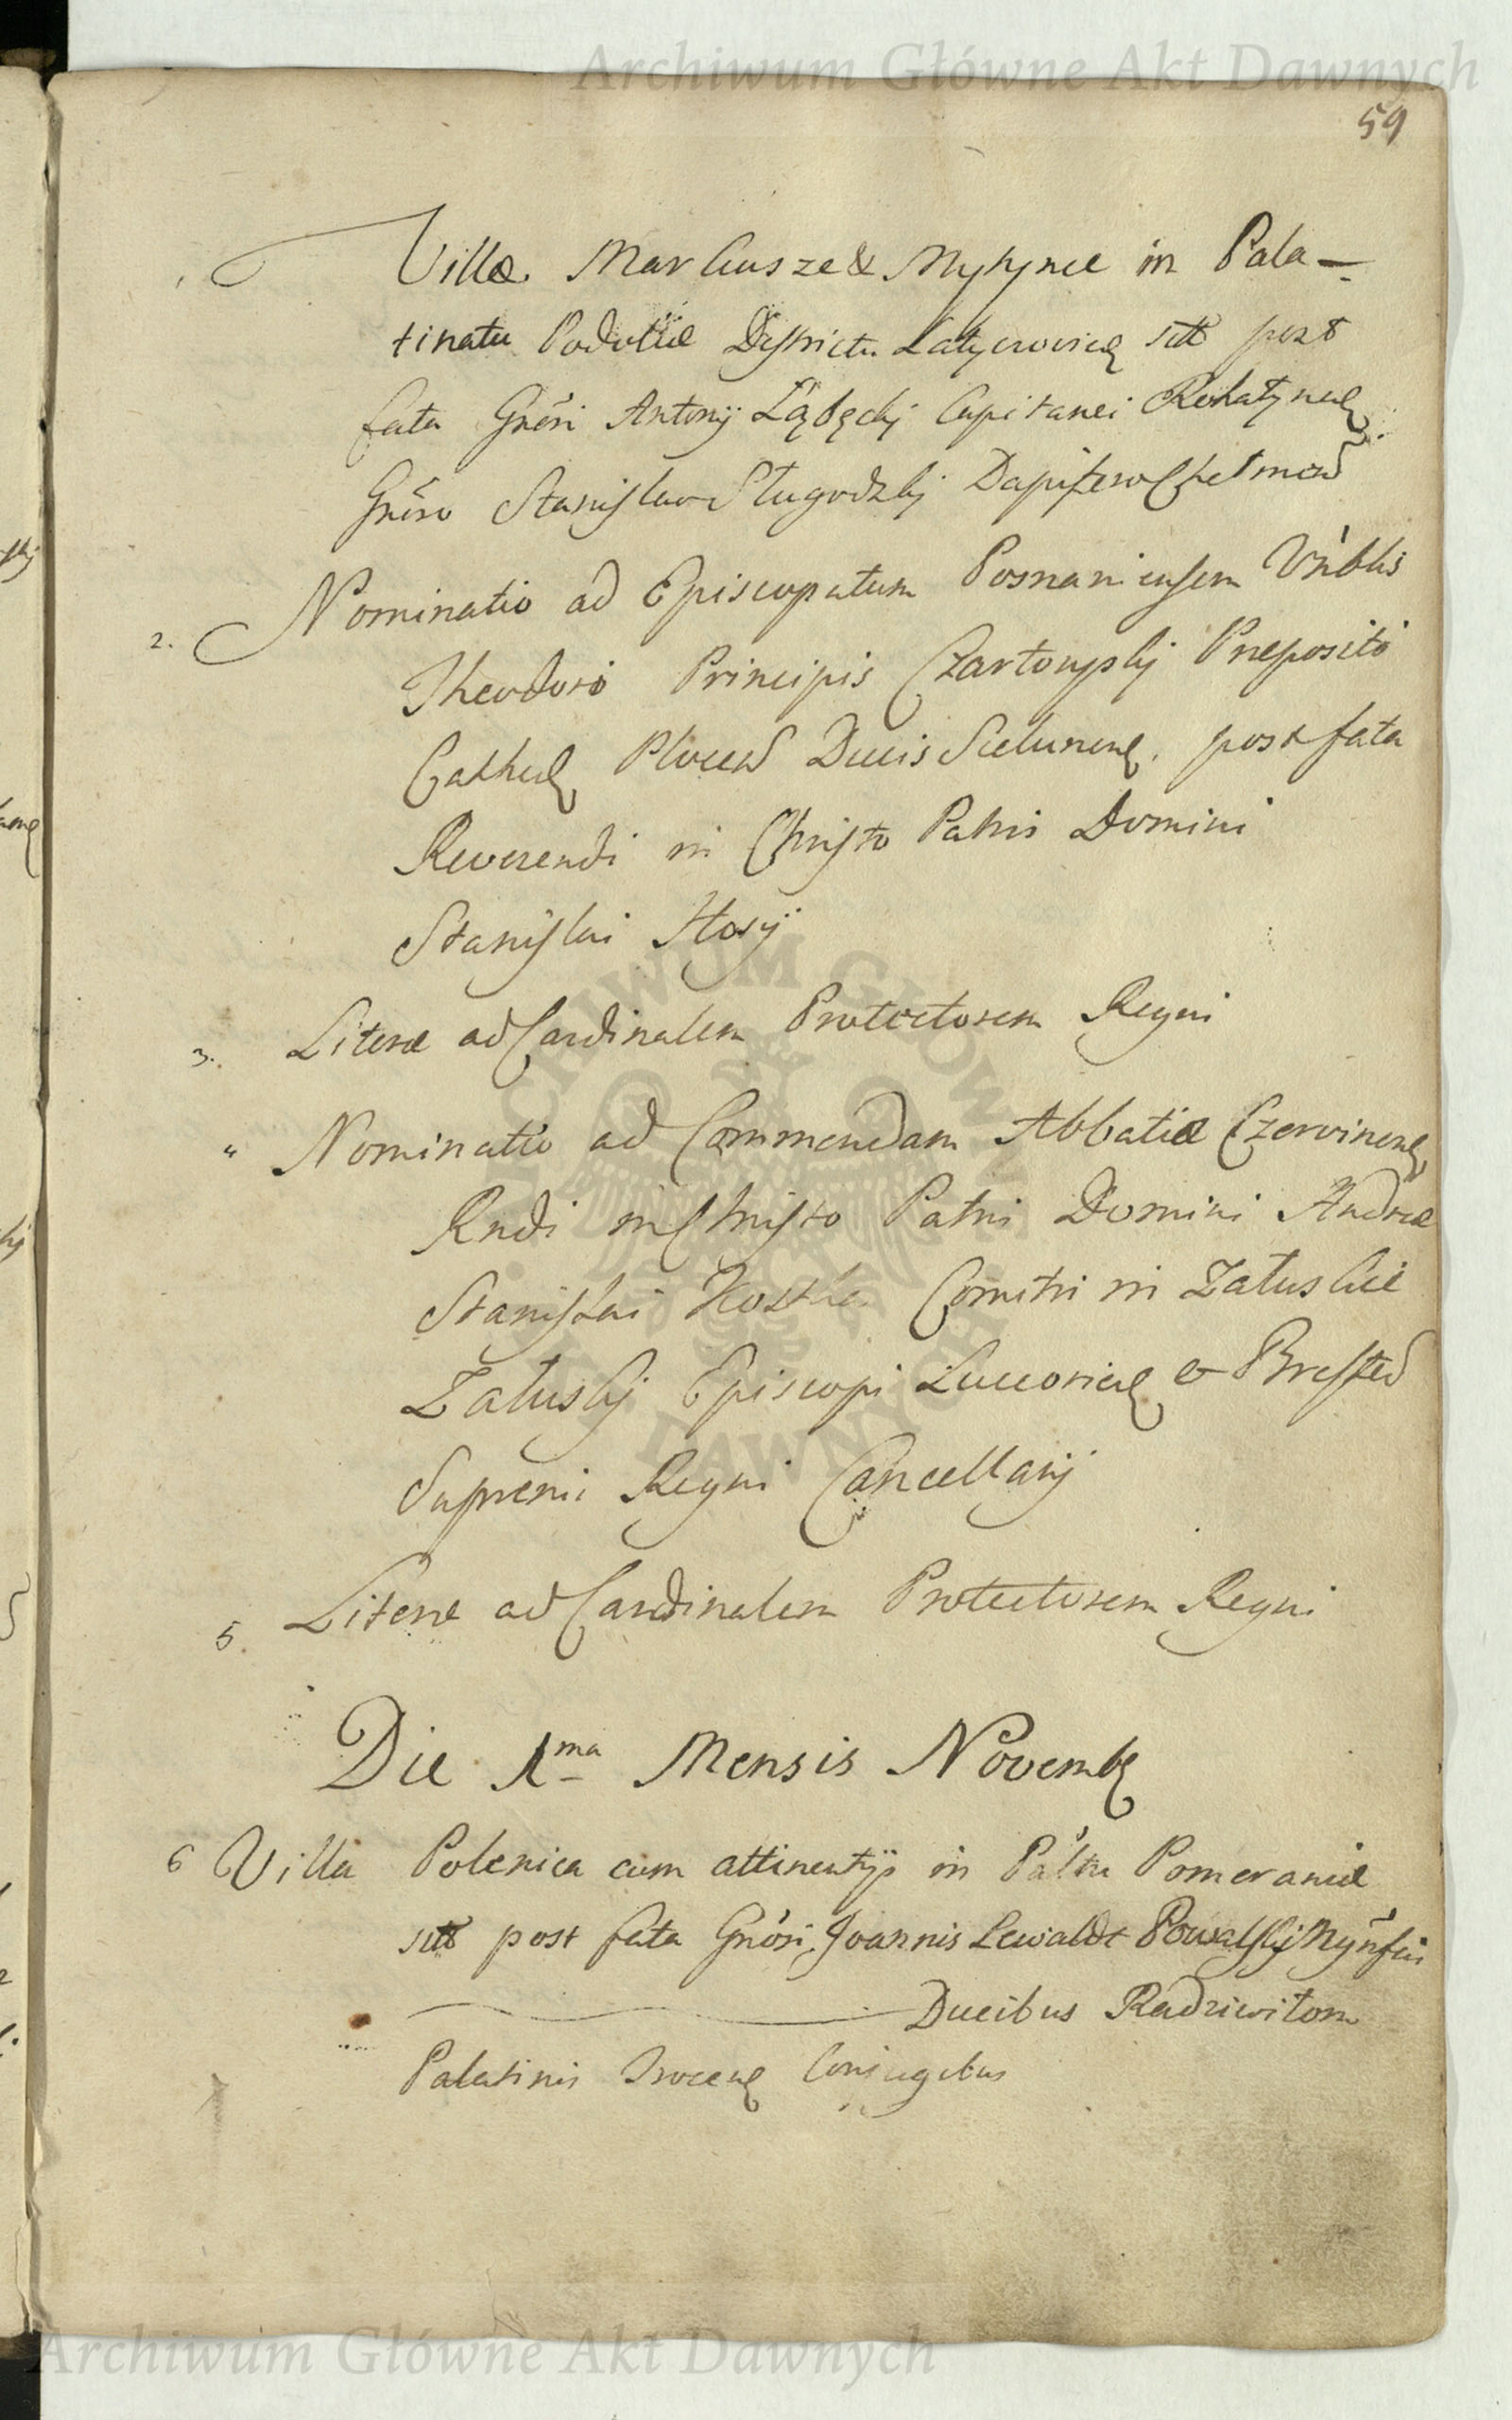 Archiwum Główne Akt Dawnych
59
1 Villæ Markusze & Mytynce in Pala-
tinatu Podoliæ Districtu Latycovien sitt post
fata Gnosi Antonij Łąbęcki Capitanei Rohatynen
Gnoso Stanislao Długodzkj Dapifero Chelmen
2. Nominatio ad Episcopatum Posnaniensem Vnblis
Theodori Principis Czartoryskj Præpositi
Cathed Plocen Ducis Sielunen, post fata
Reverendi in Christo Patris Domini
Stanislai Hosij
3. Literæ ad Cardinalem Protectorem Regni
" Nominatio ad Commendam Abbatiæ Czervinen
Rndi in Christo Patri Domini Andreæ
Stanislai Kostka Comitis in Załuskie
Załuskj Episcopi Luceorien & Bresten
Supremi Regni Cancellarij
5. Literæ ad Cardinalem Protectorem Regni
Die 1ma Mensis Novemb
6 Villa Polenica cum attinentijs in Paltu Pomeraniæ
sitt post fata Gnosi Joannis Lewaldt Powalskj
Ducibus Radziwiłom
Palatinis Trocen Conjugibus
Archiwum Główne Akt Dawnych
ARCHIWUM GŁÓWNE AKT DAWNYCH